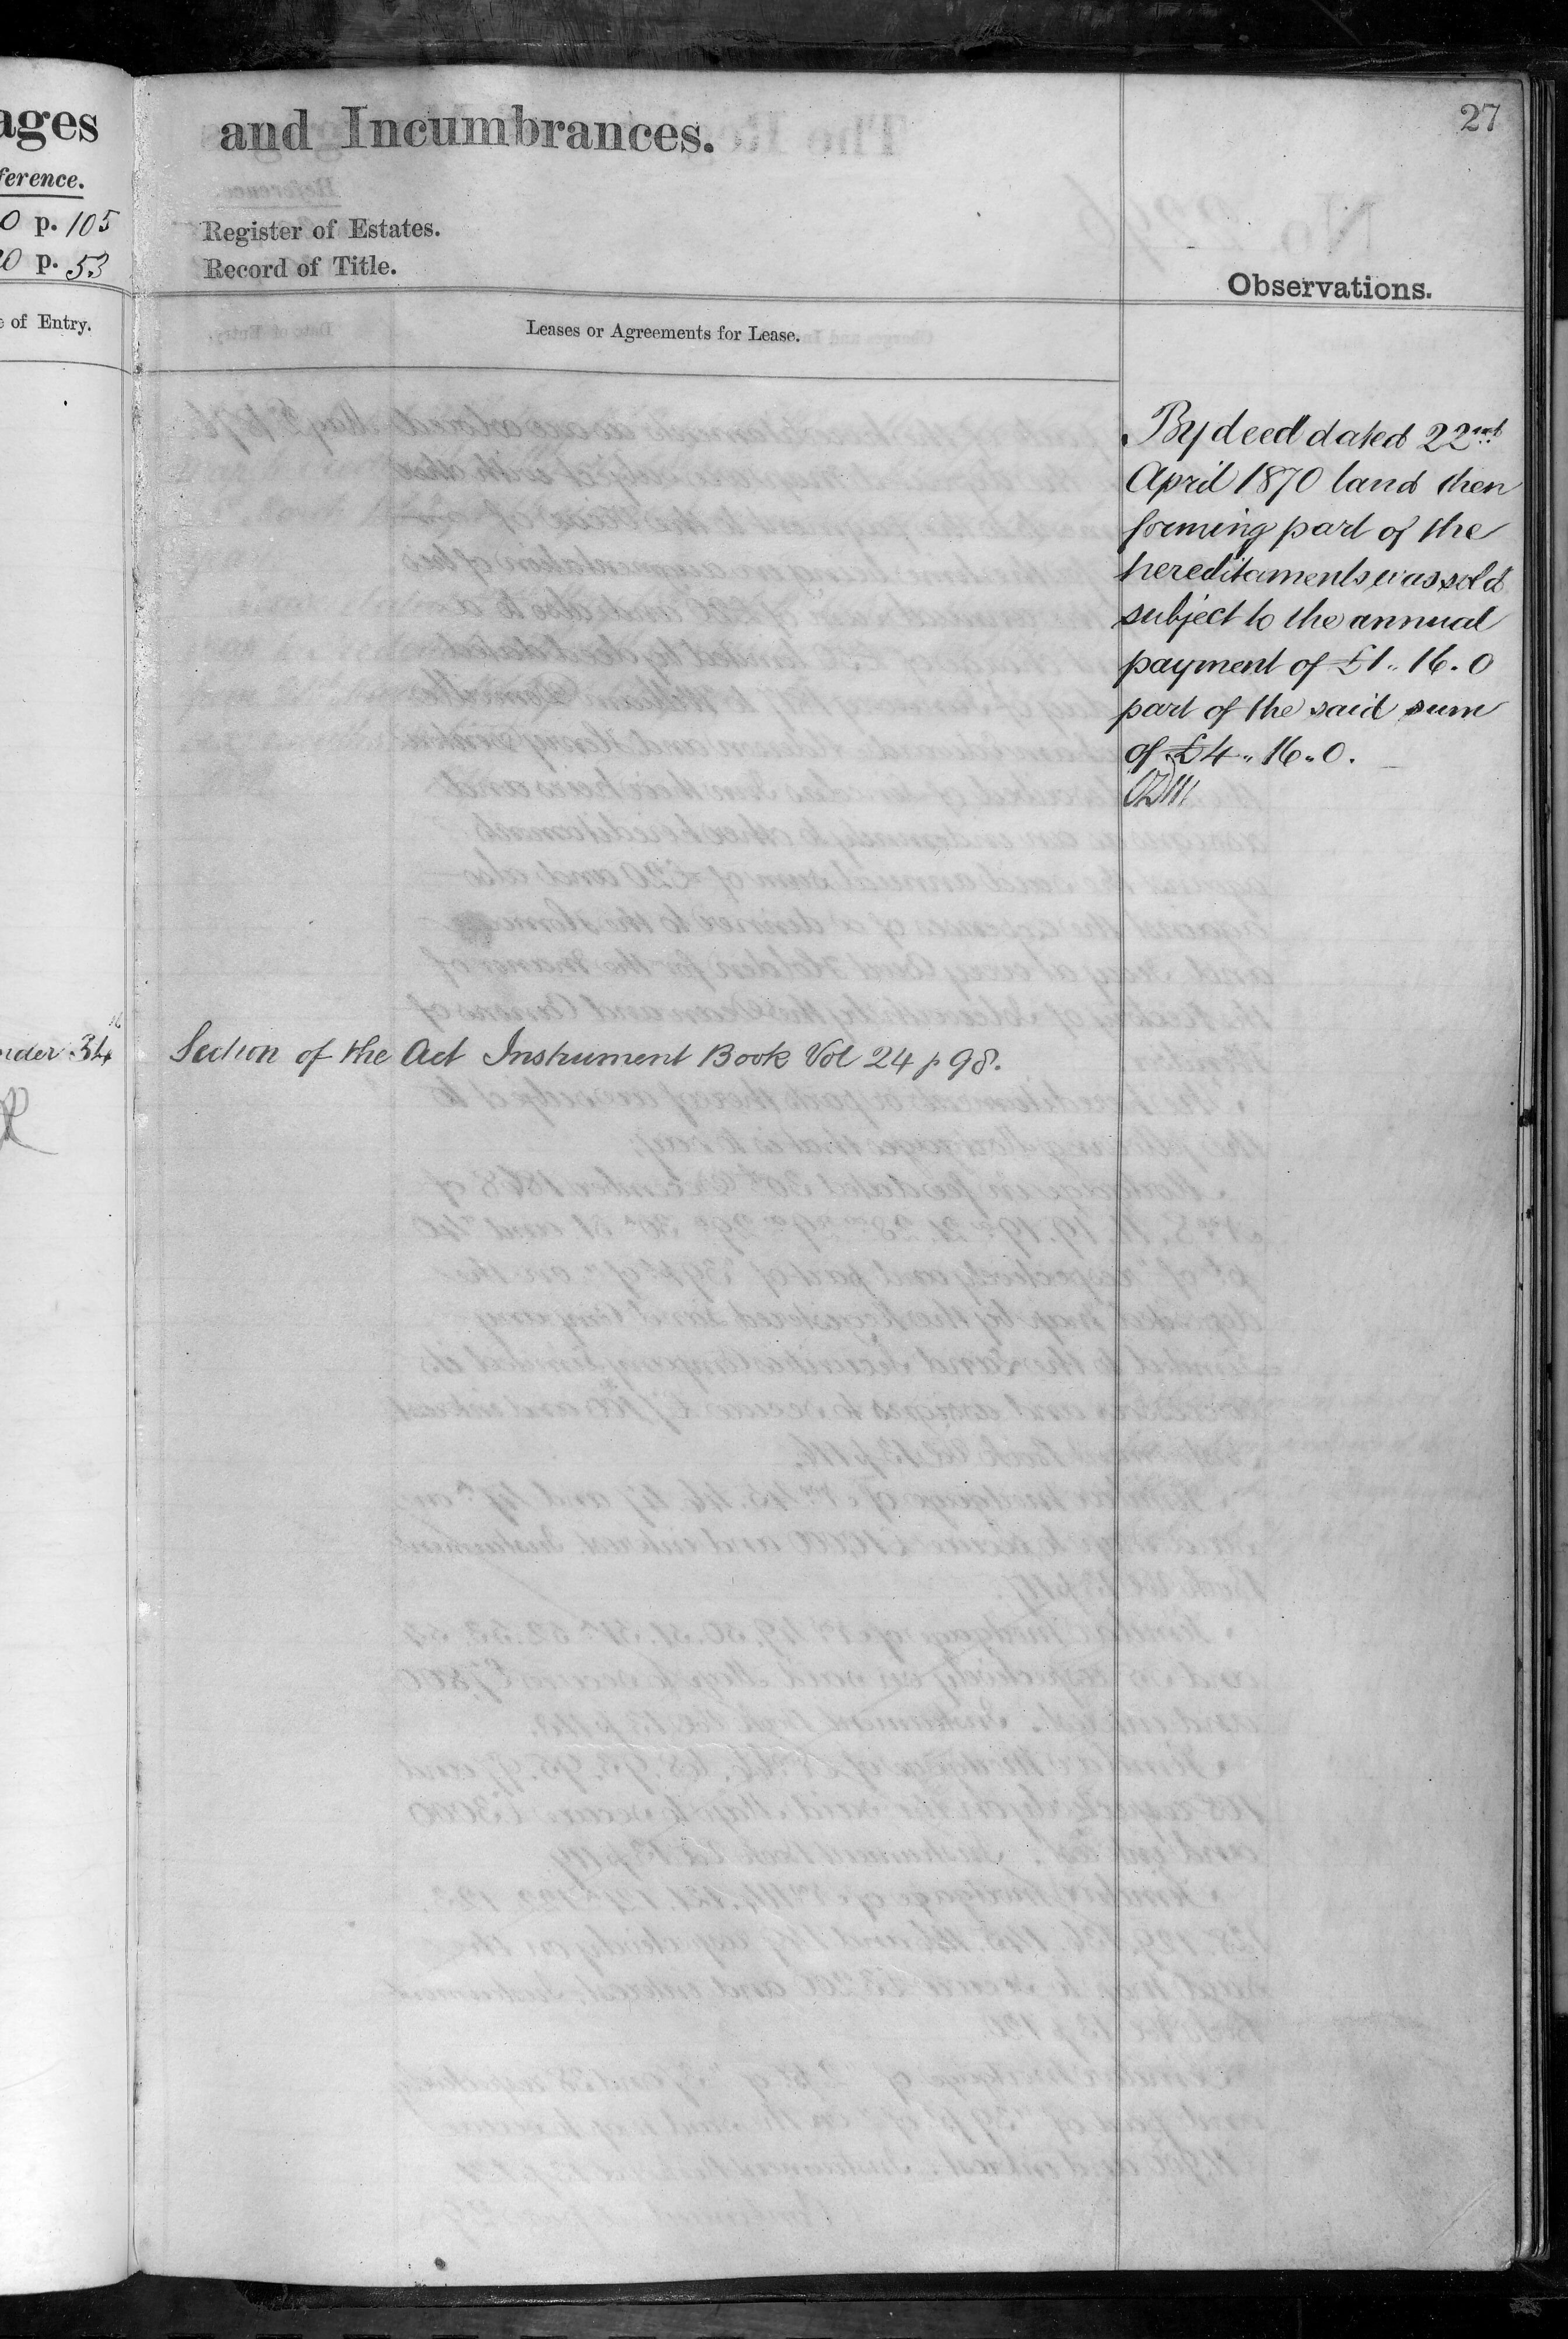 ages
ference.
0 p. 105
20 p. 53
e of Entry.
nder 34th
and Incumbrances.
27
Register of Estates.
Record of Title.
Observations.
Leases or Agreements for Lease.
By deed dated 22nd
April 1870 land then
forming part of the
hereditaments was sold
subject to the annual
payment of £1„ 16. 0
part of the said sum
of £4„ 16„ 0.
Section of the Act Instrument Book Vol 24 p 98.